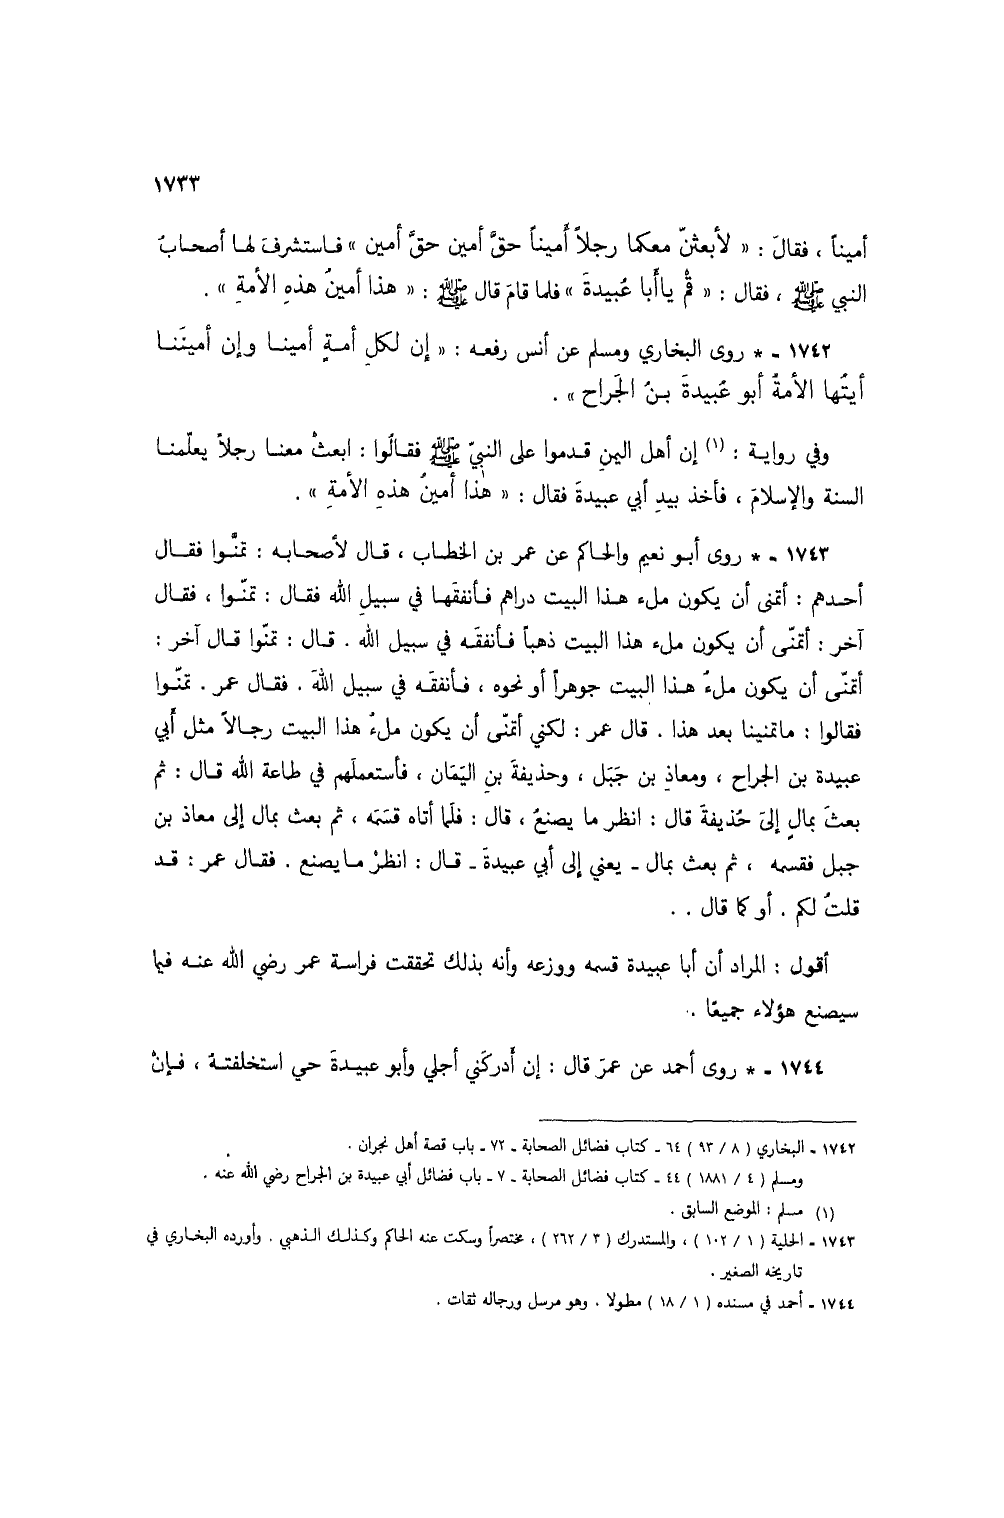 ١٧٣٣
أميناً ، فقالَ : « لأبعثنّ معكما رجلاً أَميناً حقَّ أمين حقَّ أمين » فاستشرفَ لها أصحابُ
النبي ﷺ ، فقال : « قُمْ ياأَبا عُبيدةَ » فلما قامَ قال ﷺ : « هذا أمينُ هذهِ الأمةِ » .
١٧٤٢ - * روى البخاري ومسلم عن أنس رفعه : « إن لكلِ أمةٍ أمينا وإن أمينَنا
أيتُها الأمةُ أبو عُبيدةَ بنُ الجَراح » .
وفي رواية : (١) إن أهل اليمنِ قدموا على النبيّ ﷺ فقالُوا : ابعثْ معنا رجلاً يعلّمنا
السنة والإسلامَ ، فأخذ بيدِ أبي عبيدةَ فقال : « هٰذا أمينُ هذهِ الأمةِ » .
١٧٤٣ - * روى أبو نعيم والحاكم عن عمر بن الخطاب ، قال لأصحابه : تمنَّوا فقال
أحدهم : أتمنى أن يكون ملء هذا البيت دراهم فأنفقَها في سبيلِ الله فقال : تمنّوا ، فقال
آخر : أتمنّى أن يكون ملء هذا البيت ذهباً فأنفقَه في سبيل الله . قال : تمنّوا قال آخر :
أتمنّى أن يكون ملءُ هذا البيت جوهراً أو نحوه ، فأنفقَه في سبيل اللهَ . فقال عمر . تمنّوا
فقالوا : ماتمنينا بعد هذا . قال عمر : لكني أتمنّى أن يكون ملءُ هذا البيت رجالاً مثل أَبي
عبيدة بن الجراح ، ومعاذِ بن جَبَل ، وحذيفةَ بنِ اليَمَان ، فأستعملَهم في طاعة الله قال : ثم
بعثَ بمالٍ إلىَ حُذيفةَ قال : انظر ما يصنعُ ، قال : فلَما أتاه قسَمَه ، ثم بعث بمال إلى معاذ بن
جبل فقسمه ، ثم بعث بمال - يعني إلى أبي عبيدةَ - قال : انظرْ مايصنع . فقال عمر : قد
قلتُ لكم . أو كما قال . .
أقول : المراد أن أبا عبيدة قسمه ووزعه وأنه بذلك تحققت فراسة عمر رضي الله عنه فيما
سيصنع هؤلاء جميعًا .
١٧٤٤ - * روى أحمد عن عمرَ قال : إن أَدركَني أجلي وأبو عبيدةَ حي استخلفتهُ ، فإنْ
١٧٤٢ - البخاري ( ٨ / ٩٣ ) ٦٤ - كتاب فضائل الصحابة - ٧٢ - باب قصة أهل نجران .
ومسلم ( ٤ / ١٨٨١ ) ٤٤ - كتاب فضائل الصحابة - ٧ - باب فضائل أبي عبيدة بن الجراح رضي الله عنه .
(١) مسلم : الموضع السابق .
١٧٤٣ - الحلية ( ١ / ١٠٢ ) ، والمستدرك ( ٣ / ٢٦٢ ) ، مختصراً وسكت عنه الحاكم وكذلك الذهبي . وأورده البخاري في
تاريخه الصغير .
١٧٤٤ - أحمد في مسنده ( ١ / ١٨ ) مطولا . وهو مرسل ورجاله ثقات .